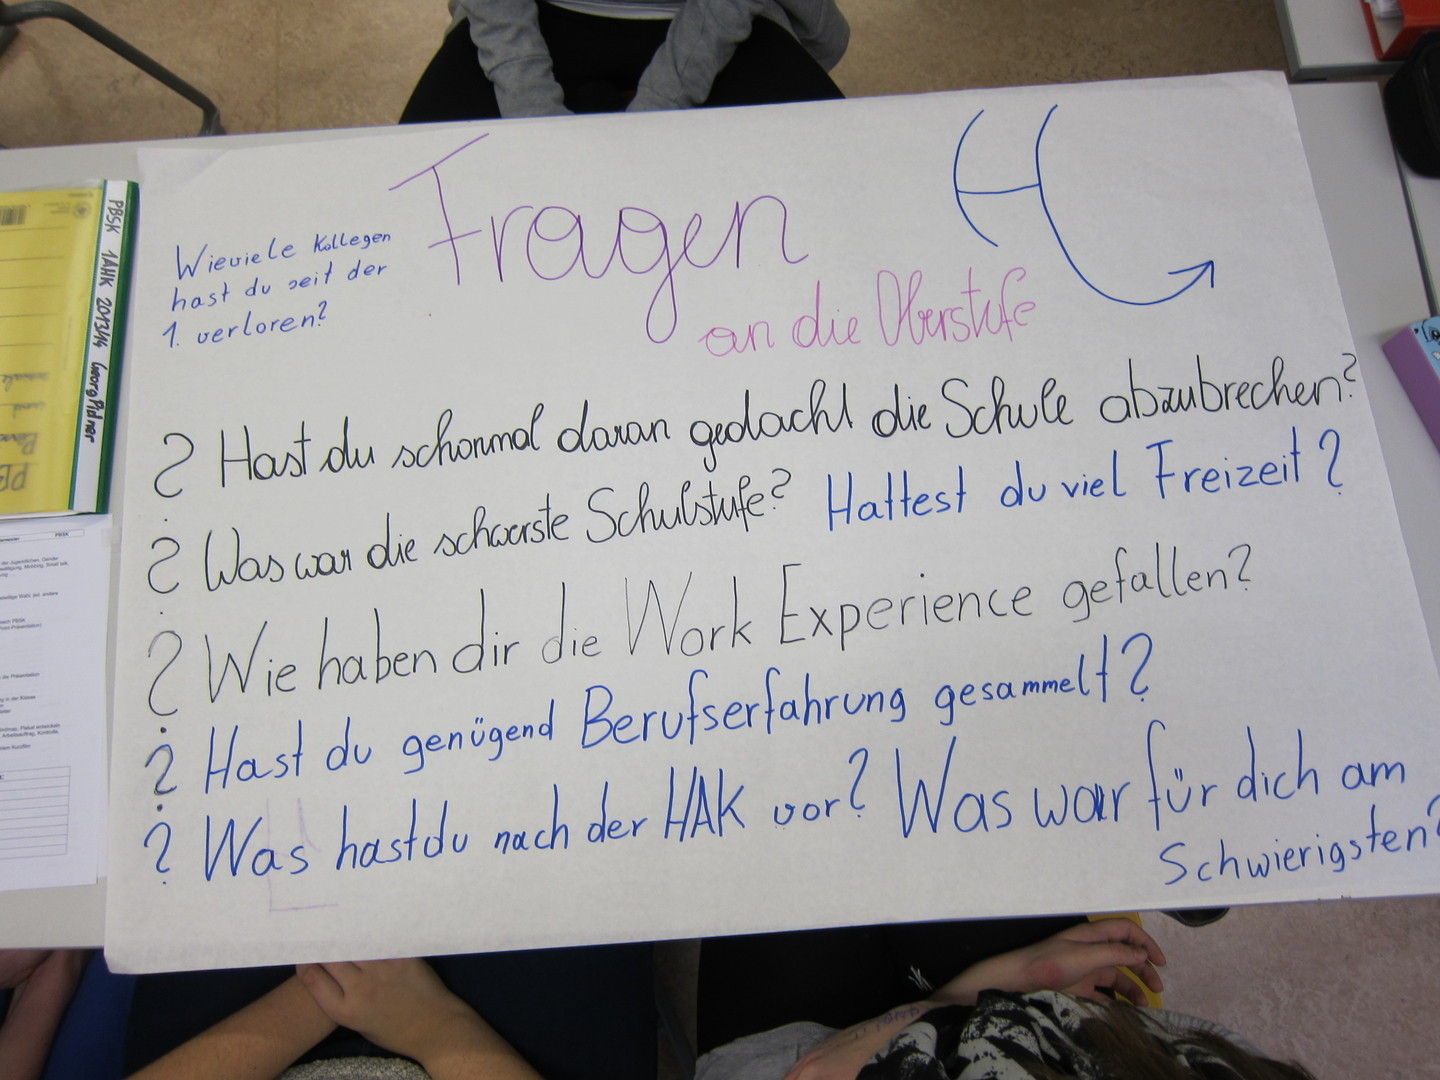 Fragen
an die Oberstufe
Wieviele Kollegen
hast du seit der
1. verloren?
? Hast du schonmal daran gedacht die Schule abzubrechen?
? Was war die schwerste Schulstufe? Hattest du viel Freizeit?
? Wie haben dir die Work Experience gefallen?
? Hast du genügend Berufserfahrung gesammelt?
? Was hast du nach der HAK vor? Was war für dich am
Schwierigsten?
PBSK 1AHK 2013/14 Georg Pidner
PBSK